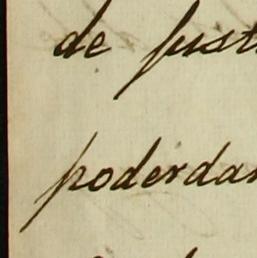 de just
poderdan